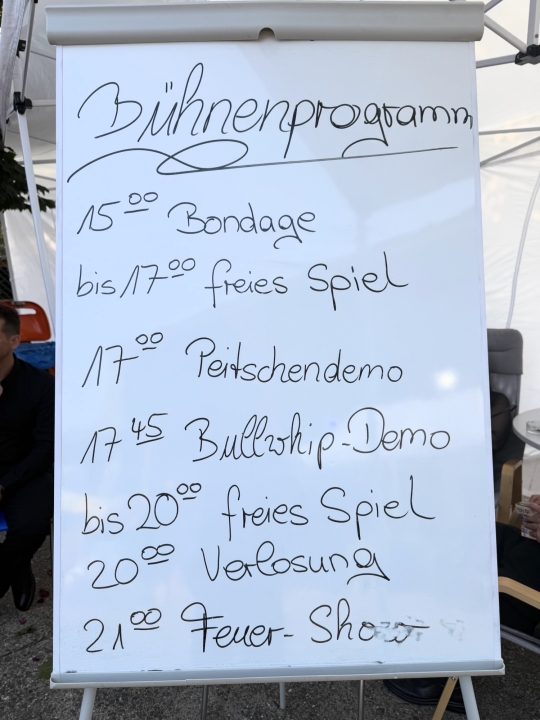 Bühnenprogramm
15 00 Bondage
bis 17 00 freies Spiel
17 00 Peitschendemo
17 45 Bullwhip-Demo
bis 20 00 freies Spiel
20 00 Verlosung
21 00 Feuer-Show